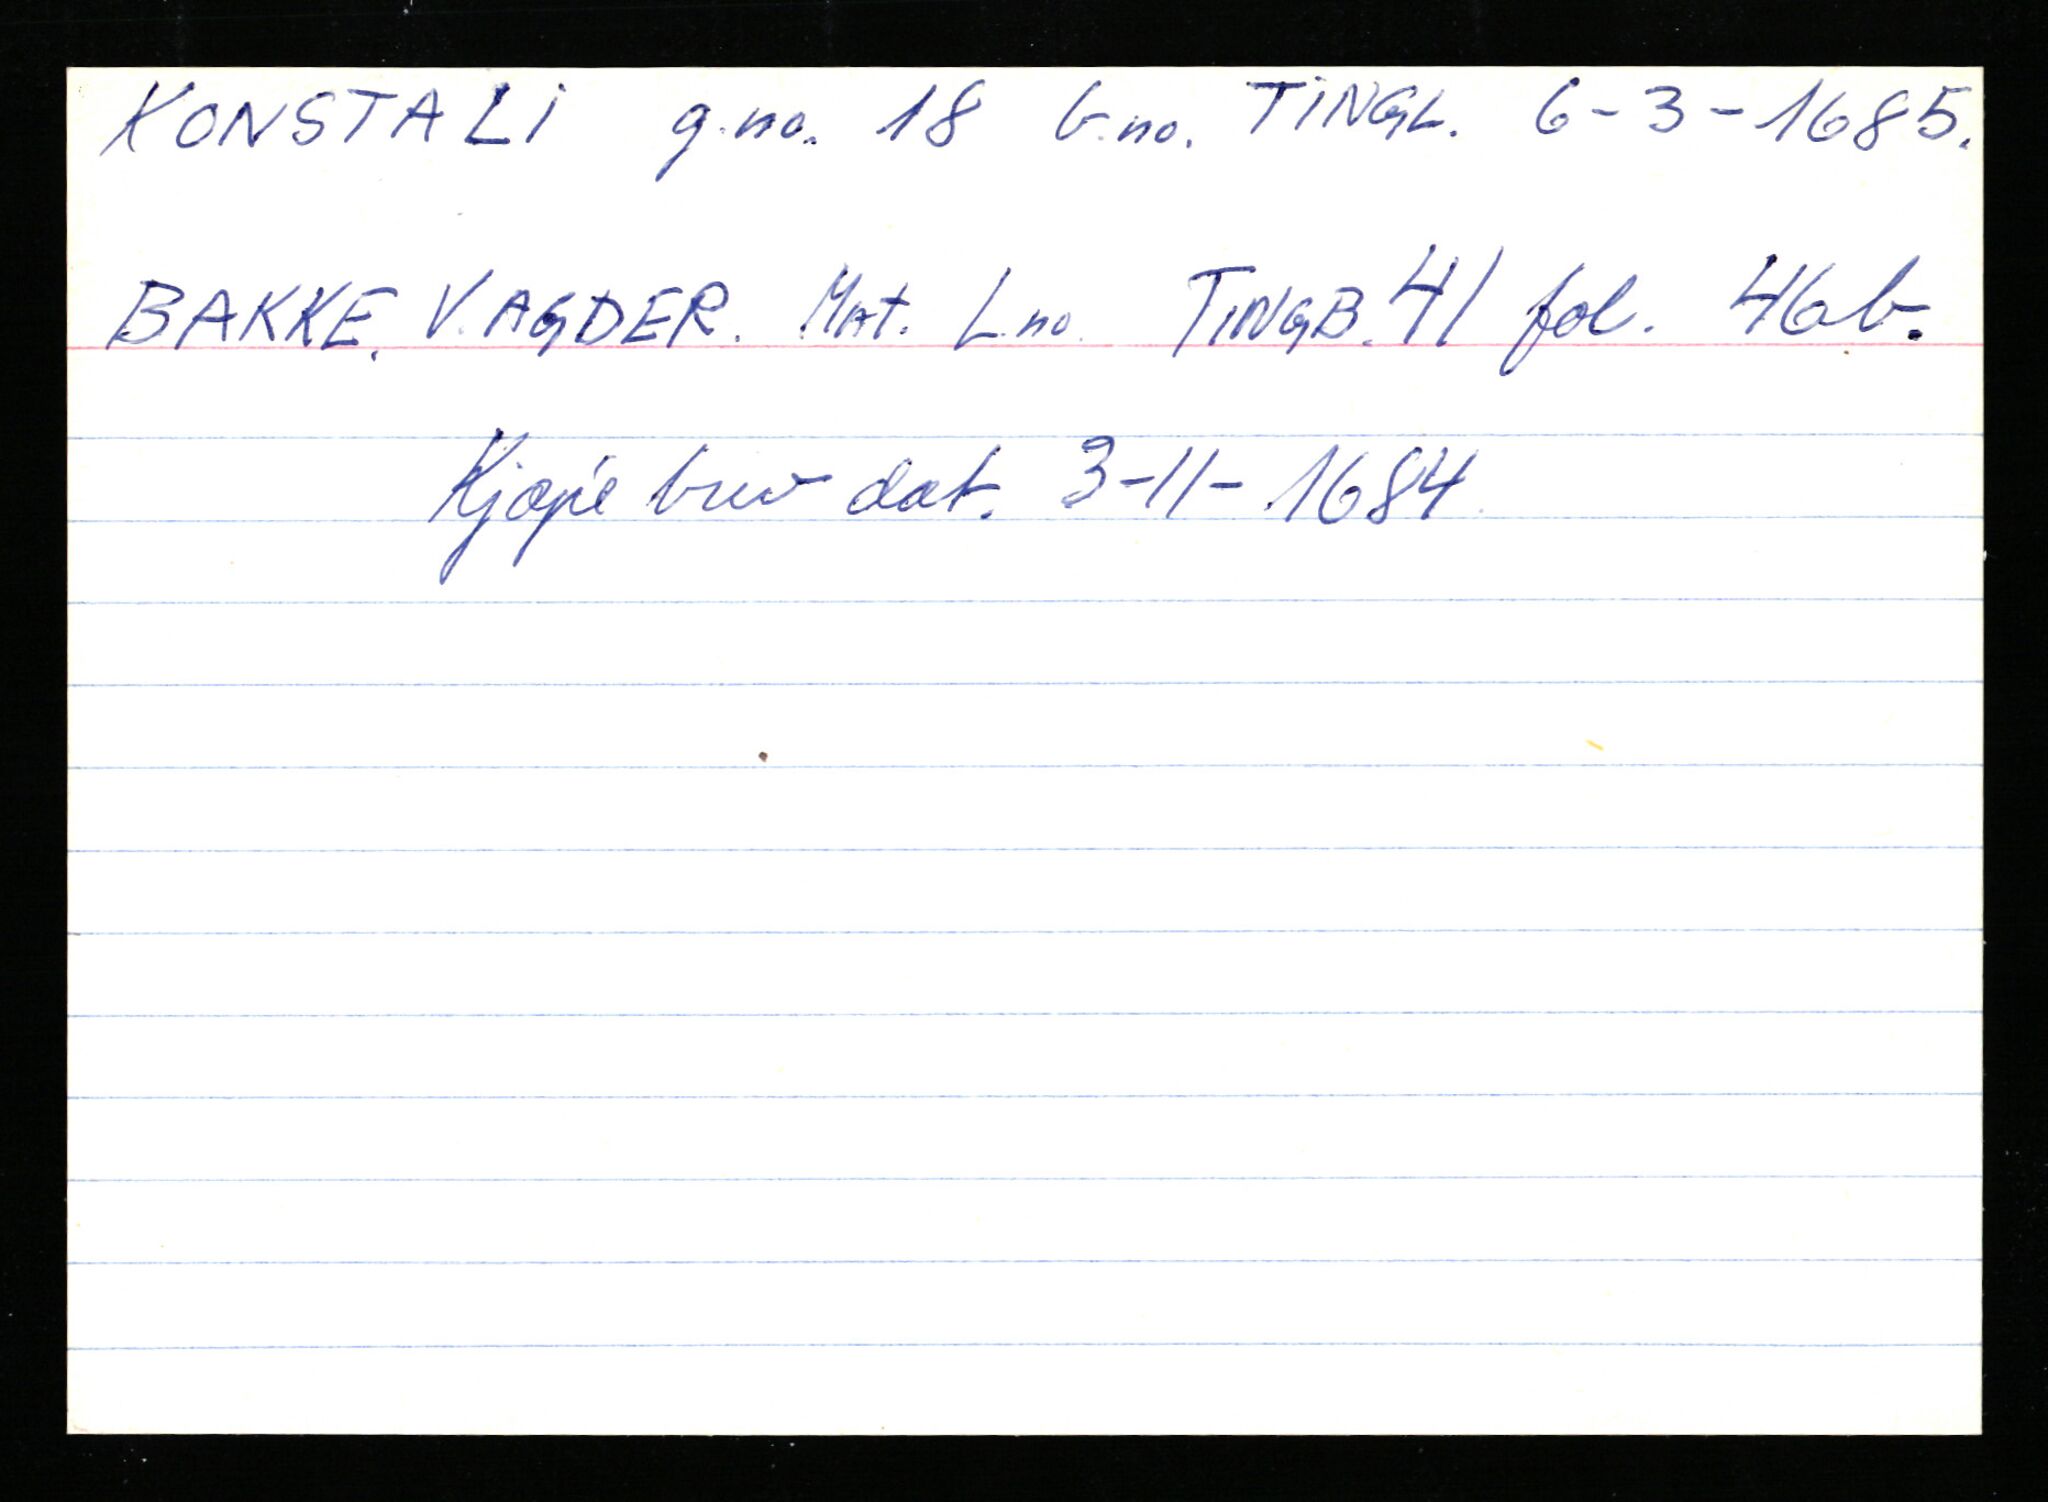 KONSTALI g.no. 18 b.no. TINGL. 6-3-1685.
BAKKE, V.AGDER. Mat. L.no TINGB.41 fol. 46b.
Kjøpe brev dat. 3-11-1684